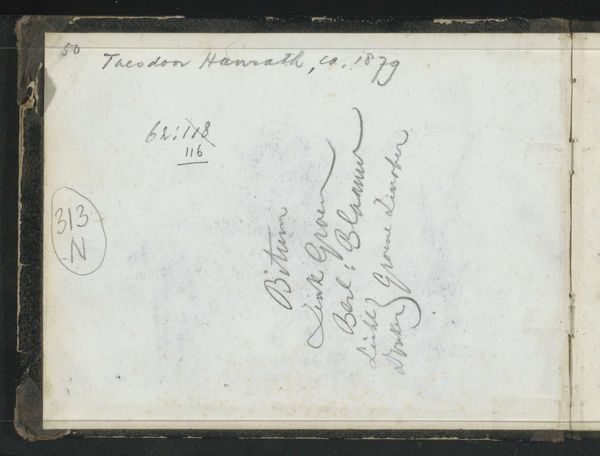 50
Theodoor Hanrath, ca. 1879
62:118
116
313
N
Bitum
Zink Groen
Berl: Blaauw
Licht
Donker } Groene Zinober